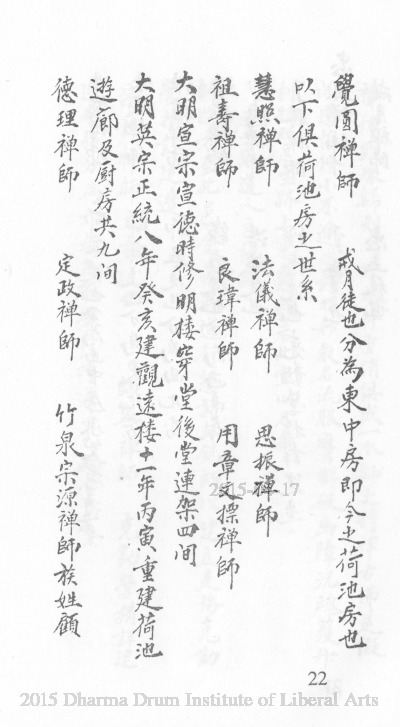 覺圓禪師　戒月徒也分為東中房即今之荷池房也
以下俱荷池房之世系
慧照禪師　法儀禪師　思振禪師
祖壽禪師　良瑋禪師　用章文摽禪師
大明宣宗宣德時修明楼穿堂後堂連架四间
大明英宗正統八年癸亥建觀遠楼十一年丙寅重建荷池
遊廊及厨房共九间
德理禪師　定政禪師　竹泉宗源禪師族姓顧
22
2015 Dharma Drum Institute of Liberal Arts